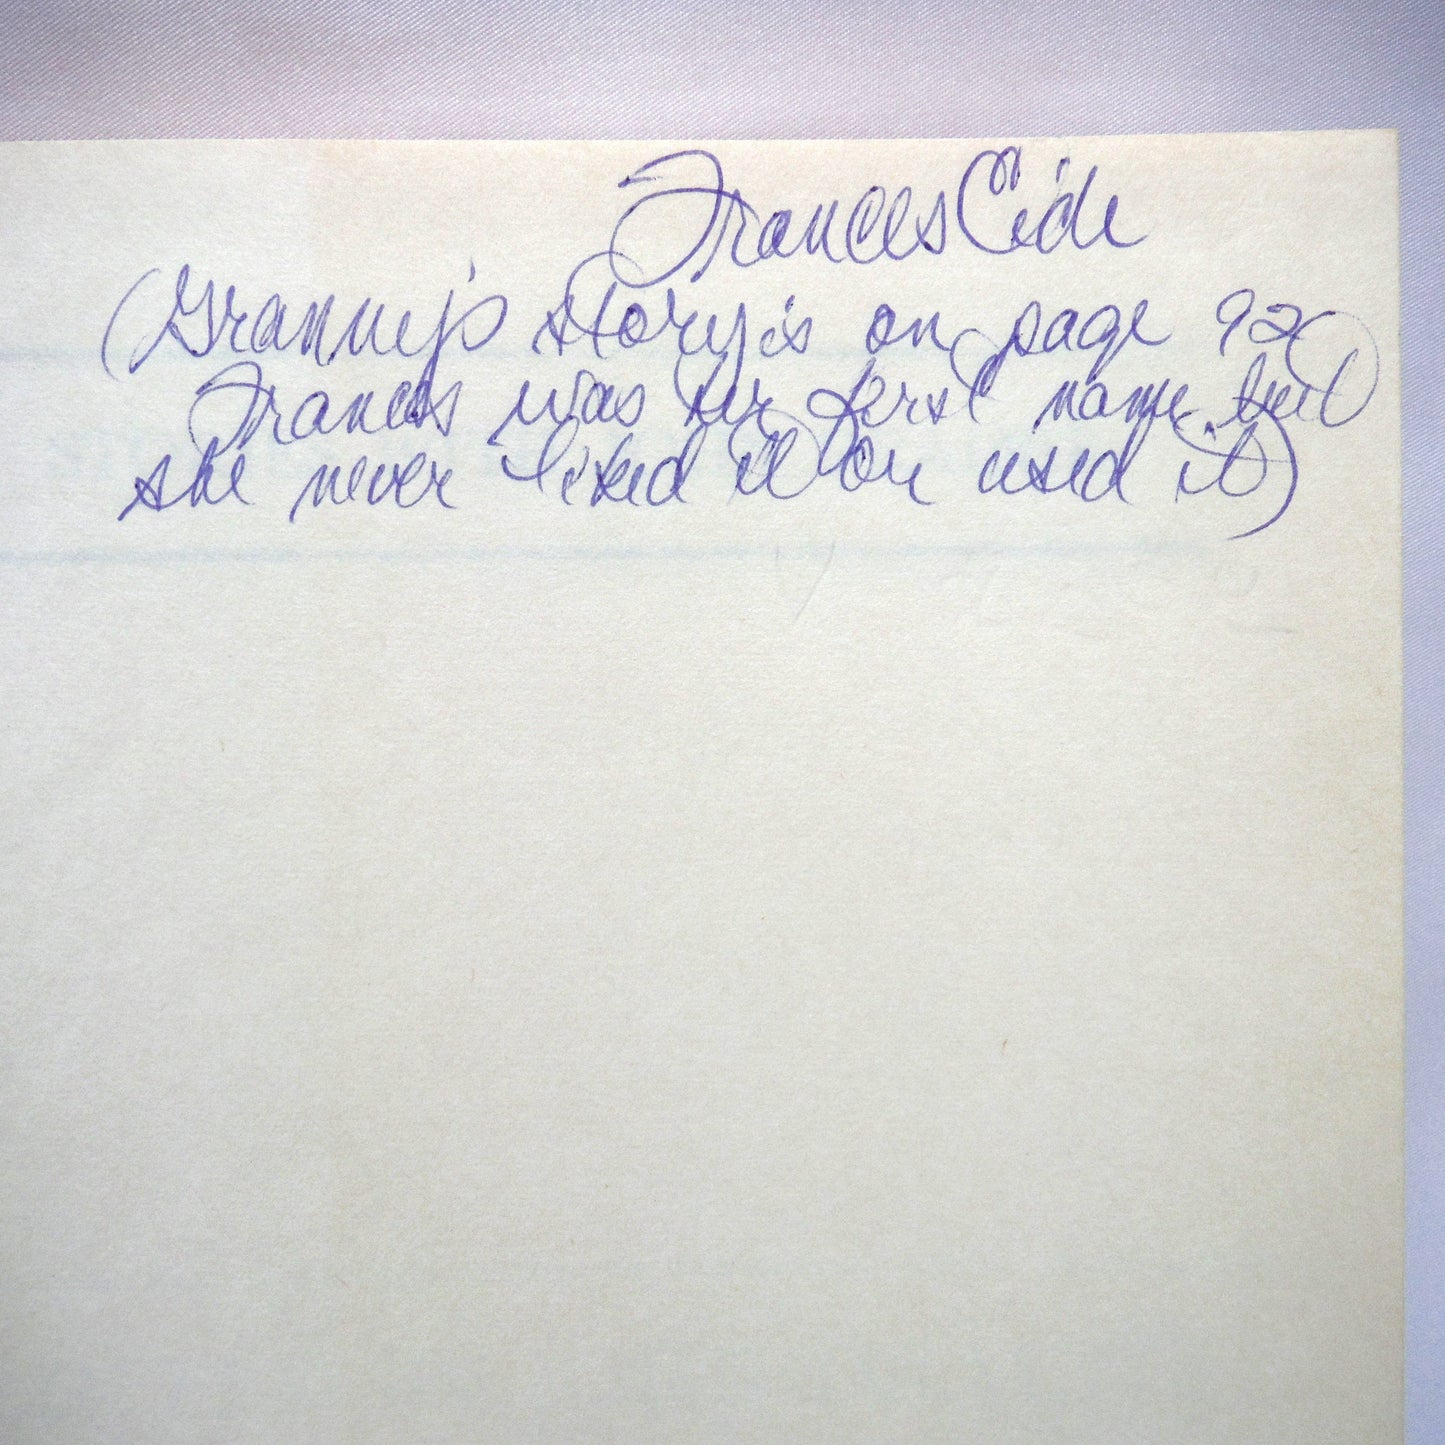 Frances Eide
(Granny's story is on page 92
Frances was her first name but
she never liked it or used it)